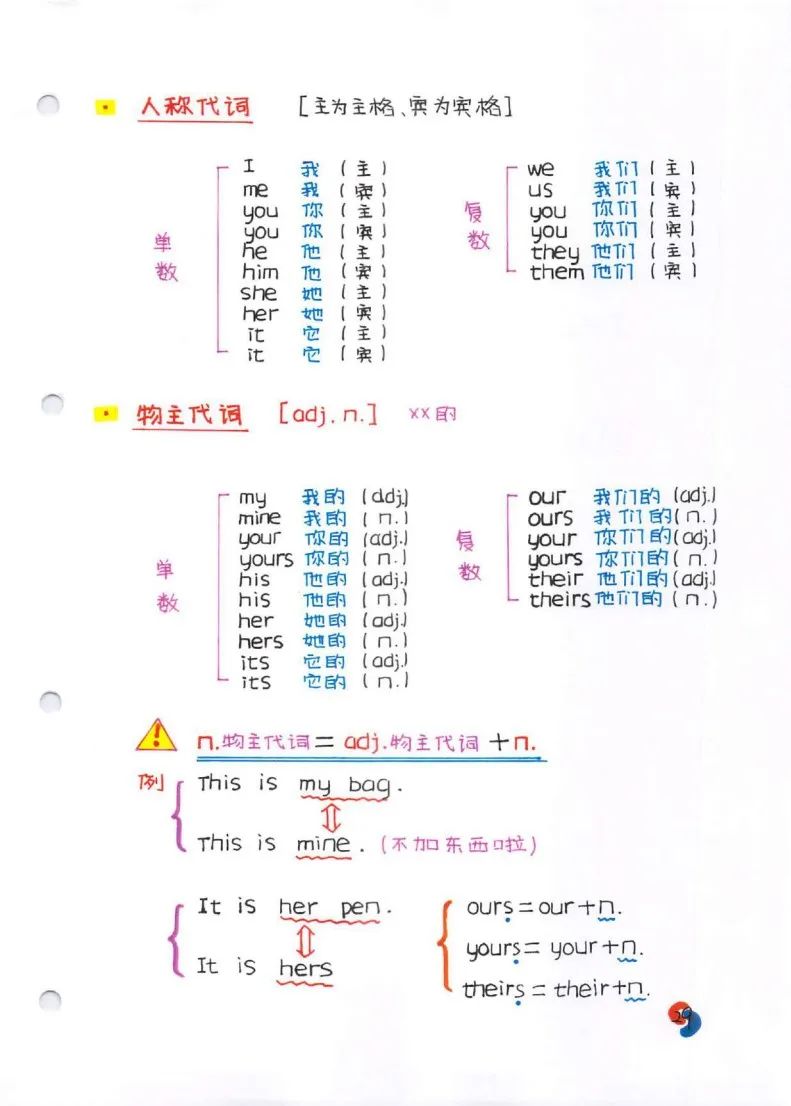 人称代词 [主为主格、宾为宾格]
单数
I 我 (主)
me 我 (宾)
you 你 (主)
you 你 (宾)
he 他 (主)
him 他 (宾)
she 她 (主)
her 她 (宾)
it 它 (主)
it 它 (宾)
复数
we 我们 (主)
us 我们 (宾)
you 你们 (主)
you 你们 (宾)
they 他们 (主)
them 他们 (宾)
物主代词 [adj. n.] xx的
单数
my 我的 (adj.)
mine 我的 (n.)
your 你的 (adj.)
yours 你的 (n.)
his 他的 (adj.)
his 他的 (n.)
her 她的 (adj.)
hers 她的 (n.)
its 它的 (adj.)
its 它的 (n.)
复数
our 我们的 (adj.)
ours 我们的 (n.)
your 你们的 (adj.)
yours 你们的 (n.)
their 他们的 (adj.)
theirs 他们的 (n.)
! n.物主代词 = adj.物主代词 + n.
例 This is my bag.
This is mine. (不加东西啦)
It is her pen.
It is hers
ours = our + n.
yours = your + n.
theirs = their + n.
29